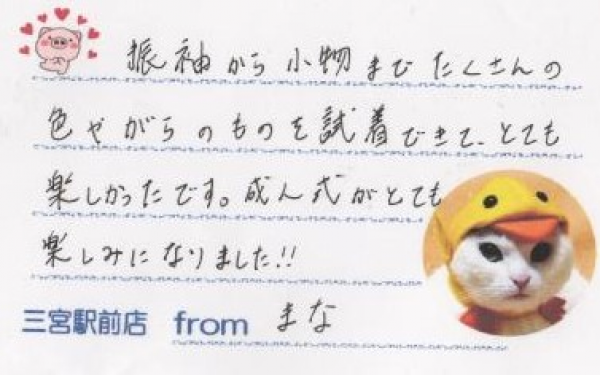 振袖から小物までたくさんの
色やがらのものを試着できて、とても
楽しかったです。成人式がとても
楽しみになりました!!
三宮駅前店 from まな